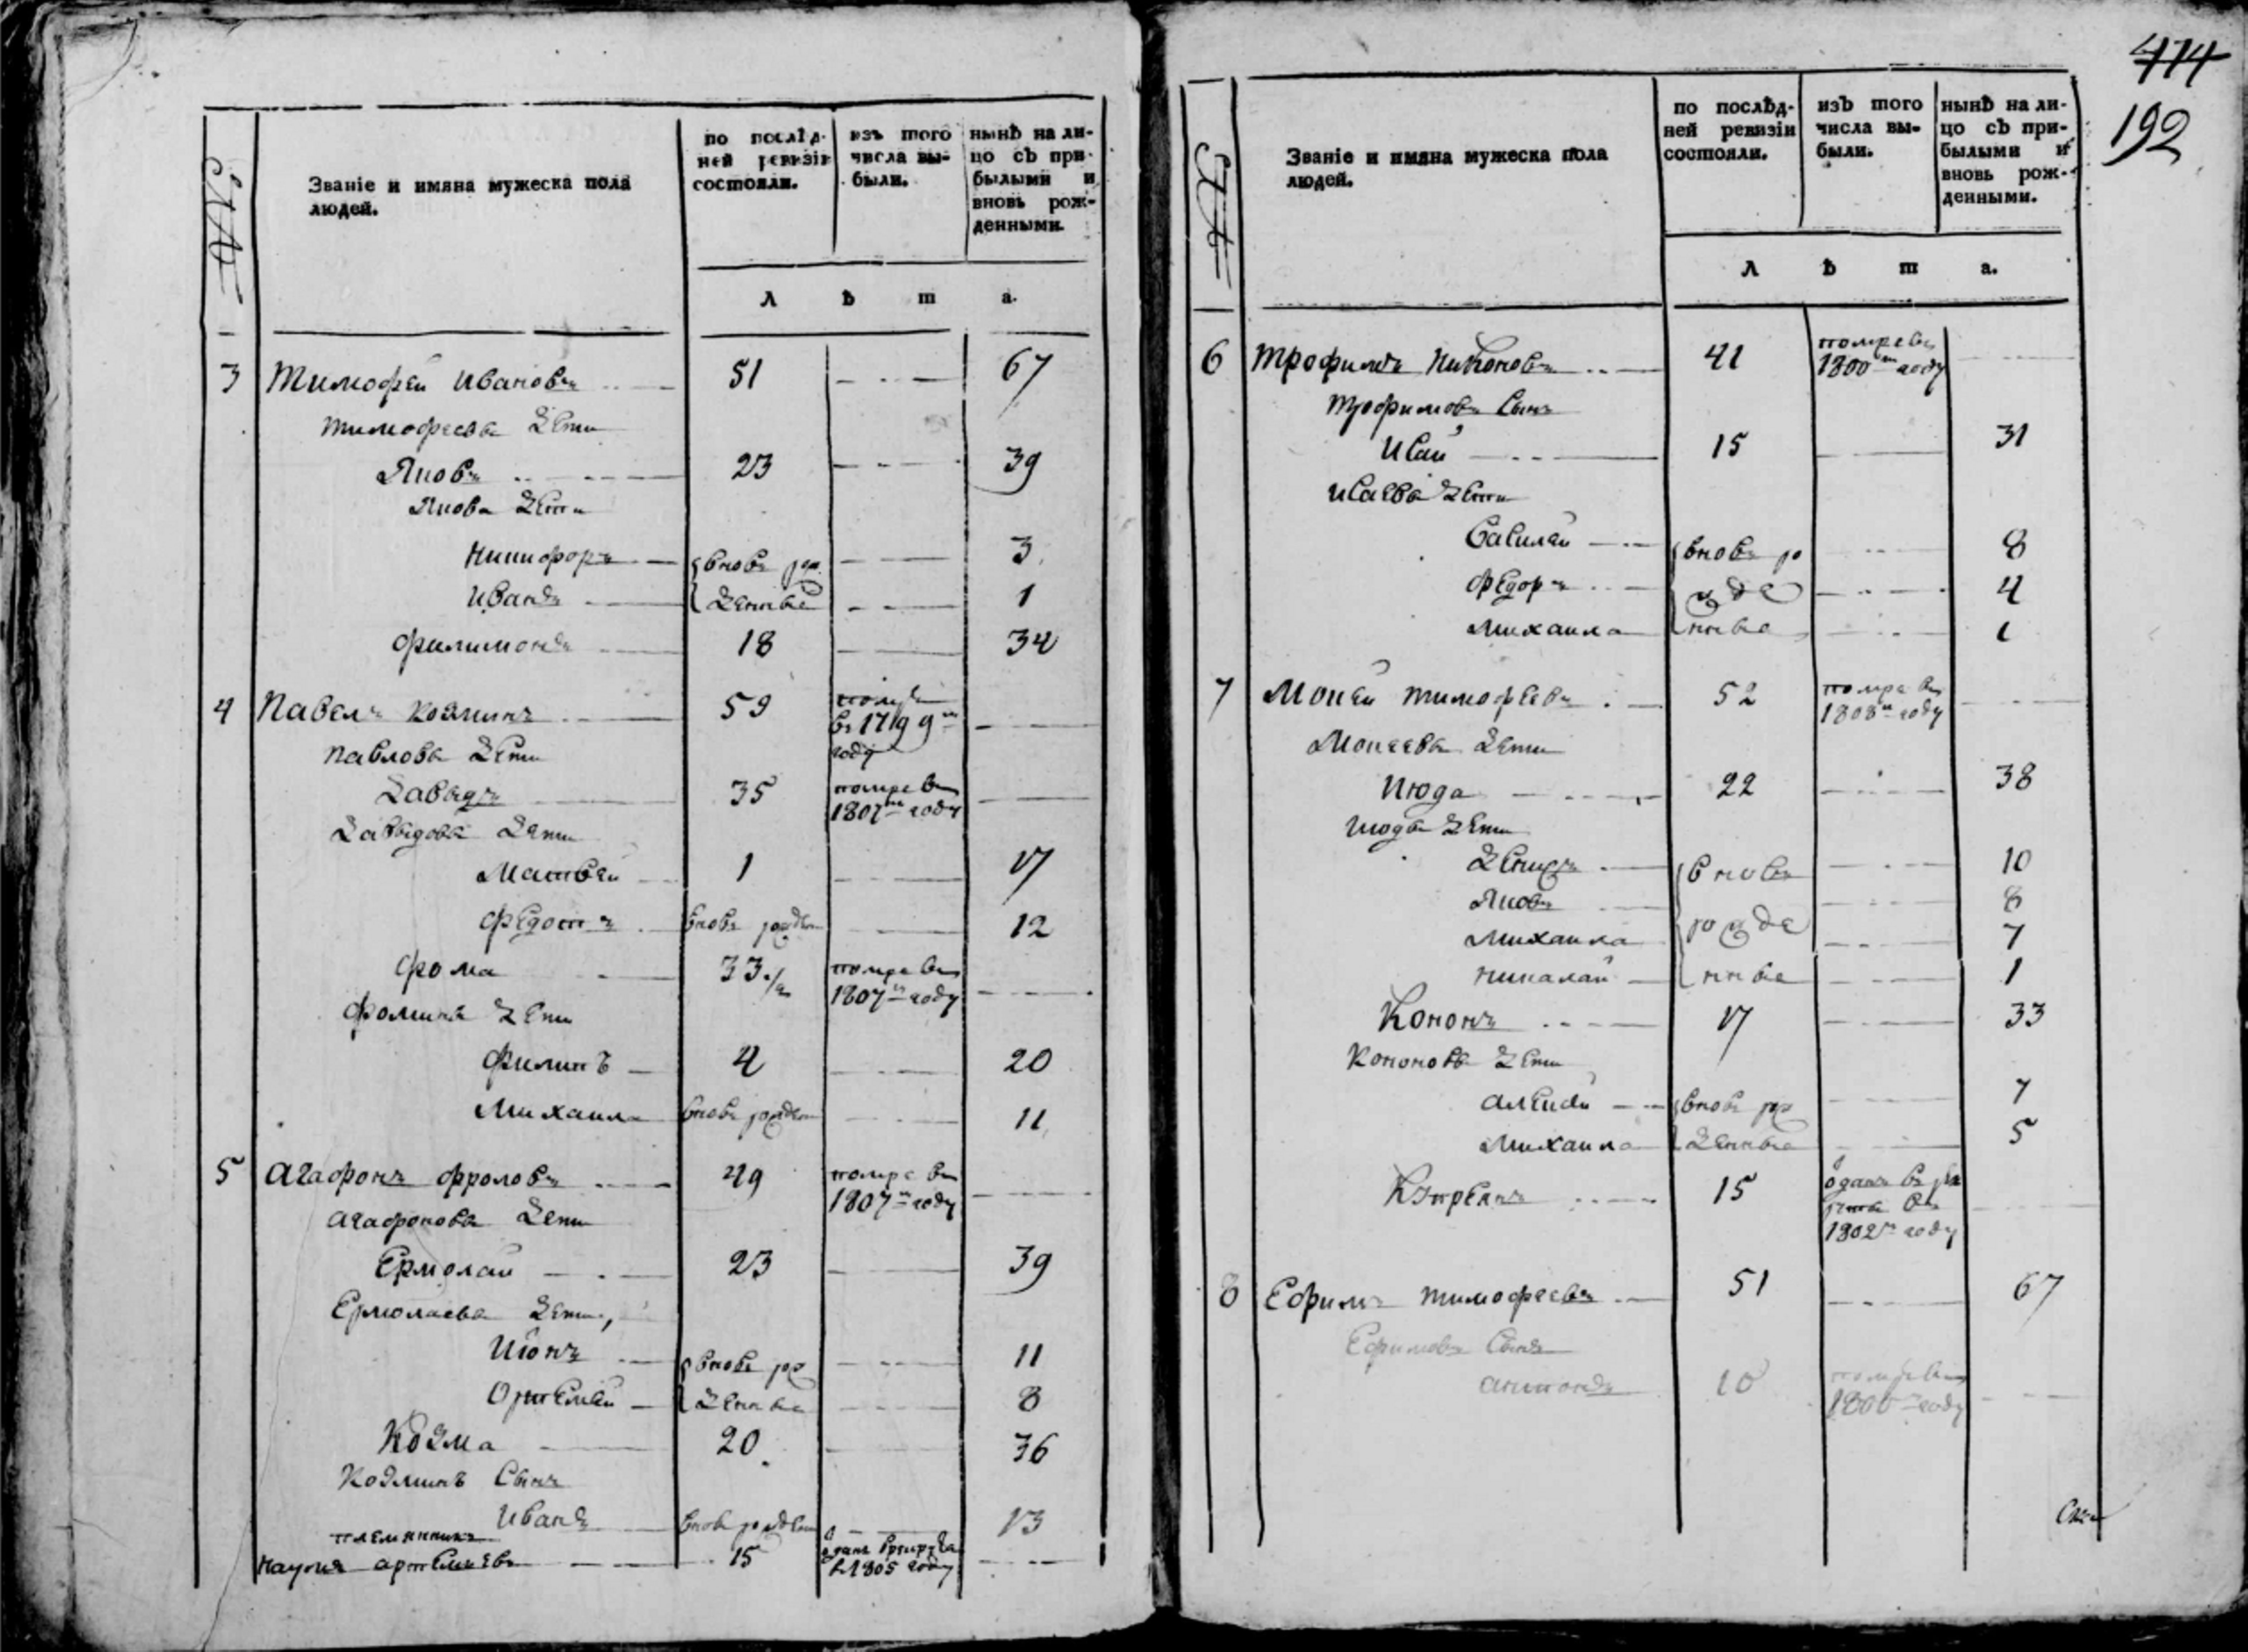 474
192
№
Званіе и имяна мужеска пола
людей.
по послѣд-
ней ревизіи
состояли.
изъ того
числа вы-
были.
нынѣ на ли-
цо съ при-
былыми и
вновь рож-
денными.
л ѣ т а.
3 Тимофей Ивановъ 51 67
Тимофеева дети
Яковъ 23 39
Якова дети
Никифоръ вновь рож 3
Иванъ денные 1
Филимонъ 18 34
4 Павелъ Козминъ 59 помре
въ 1799м
году
Павлова дети
Давыдъ 35 помре въ
1807м году
Давыдова дети
Матвей 1 17
Федотъ вновь рожден 12
Фома 33 помре въ
1807м году
Фомины дети
Филипъ 4 20
Михаила вновь рожден 11
5 Агафонъ Фроловъ 49 помре въ
1807м году
Агафонова дети
Ермолай 23 39
Ермолаева дети
Июнъ вновь рож 11
Ортемей денные 8
Козма 20 36
Козминъ сынъ
Иванъ вновь рожден 13
племянникъ
Наумъ Артемьевъ 15 отданъ в рекруты
в 1805 году
№
Званіе и имяна мужеска пола
людей.
по послѣд-
ней ревизіи
состояли.
изъ того
числа вы-
были.
нынѣ на ли-
цо съ при-
былыми и
вновь рож-
денными.
л ѣ т а.
6 Трофимъ Никоновъ 41 помре въ
1800м году
Трофимовъ сынъ
Исай 15 31
Исаева дети
Василей вновь ро 8
Федоръ жде 4
Михаила нные 1
7 Мокей Тимофеевъ 52 помре въ
1808м году
Мокеева дети
Июда 22 38
Июды дети
Денисъ вновь 10
Яковъ 8
Михаила рожде 7
Николай нные 1
Кононъ 17 33
Кононова дети
Алексей вновь рож 7
Михаила денные 5
15 отданъ в рек
руты въ
1802м году
8 Ефимъ Тимофеевъ 51 67
Ефимовъ сынъ
Антонъ 10 помре въ
1800м году